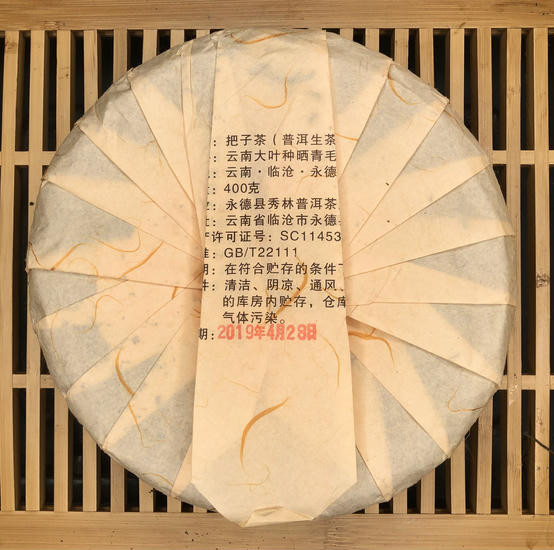 ：把子茶（普洱生茶
：云南大叶种晒青毛
：云南·临沧·永德
：400克
：永德县秀林普洱茶
：云南省临沧市永德
许可证号：SC11453
：GB/T22111
：在符合贮存的条件下
件：清洁、阴凉、通风、
的库房内贮存，仓库
气体污染。
期：2019年4月28日